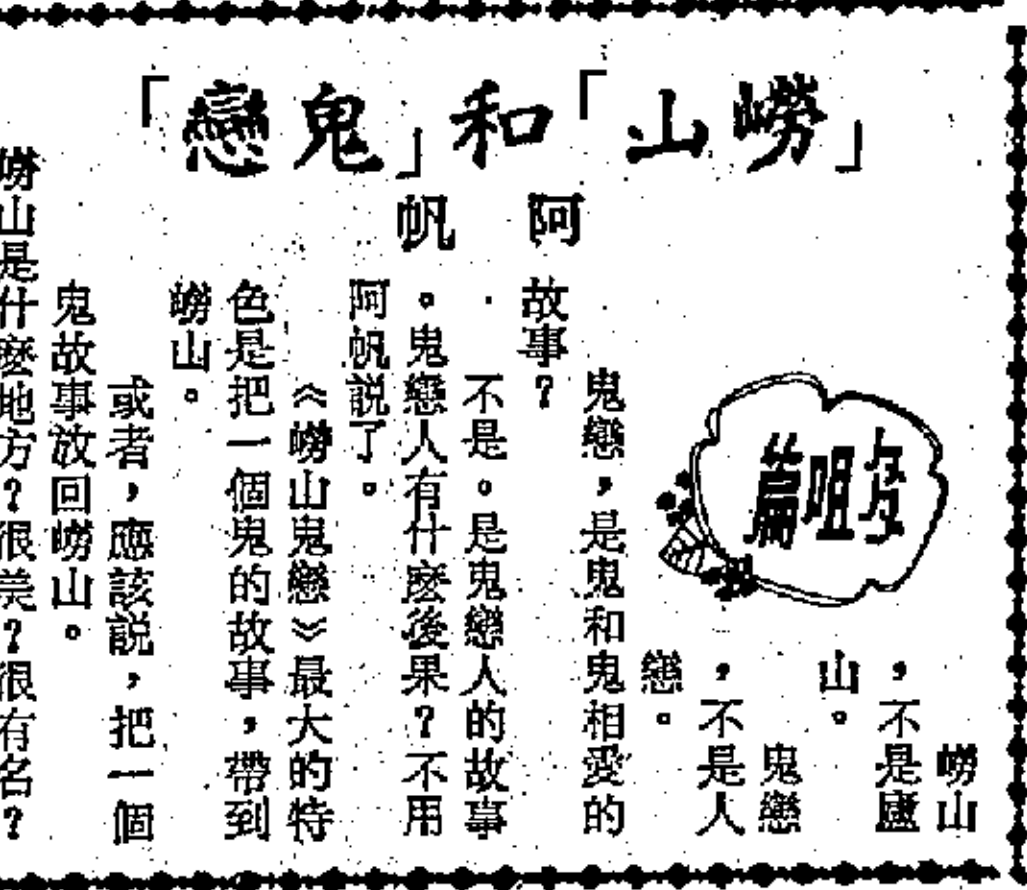 「嶗山」和「鬼戀」
阿帆
咀篇
嶗山
，不是廬
山。
鬼戀
，不是人
戀。
鬼戀，是鬼和鬼相愛的
故事？
不是。是鬼戀人的故事
。鬼戀人有什麽後果？不用
阿帆説了。
《嶗山鬼戀》最大的特
色是把一個鬼的故事，帶到
嶗山。
或者，應該説，把一個
鬼故事放回嶗山。
嶗山是什麽地方？很美？很有名？